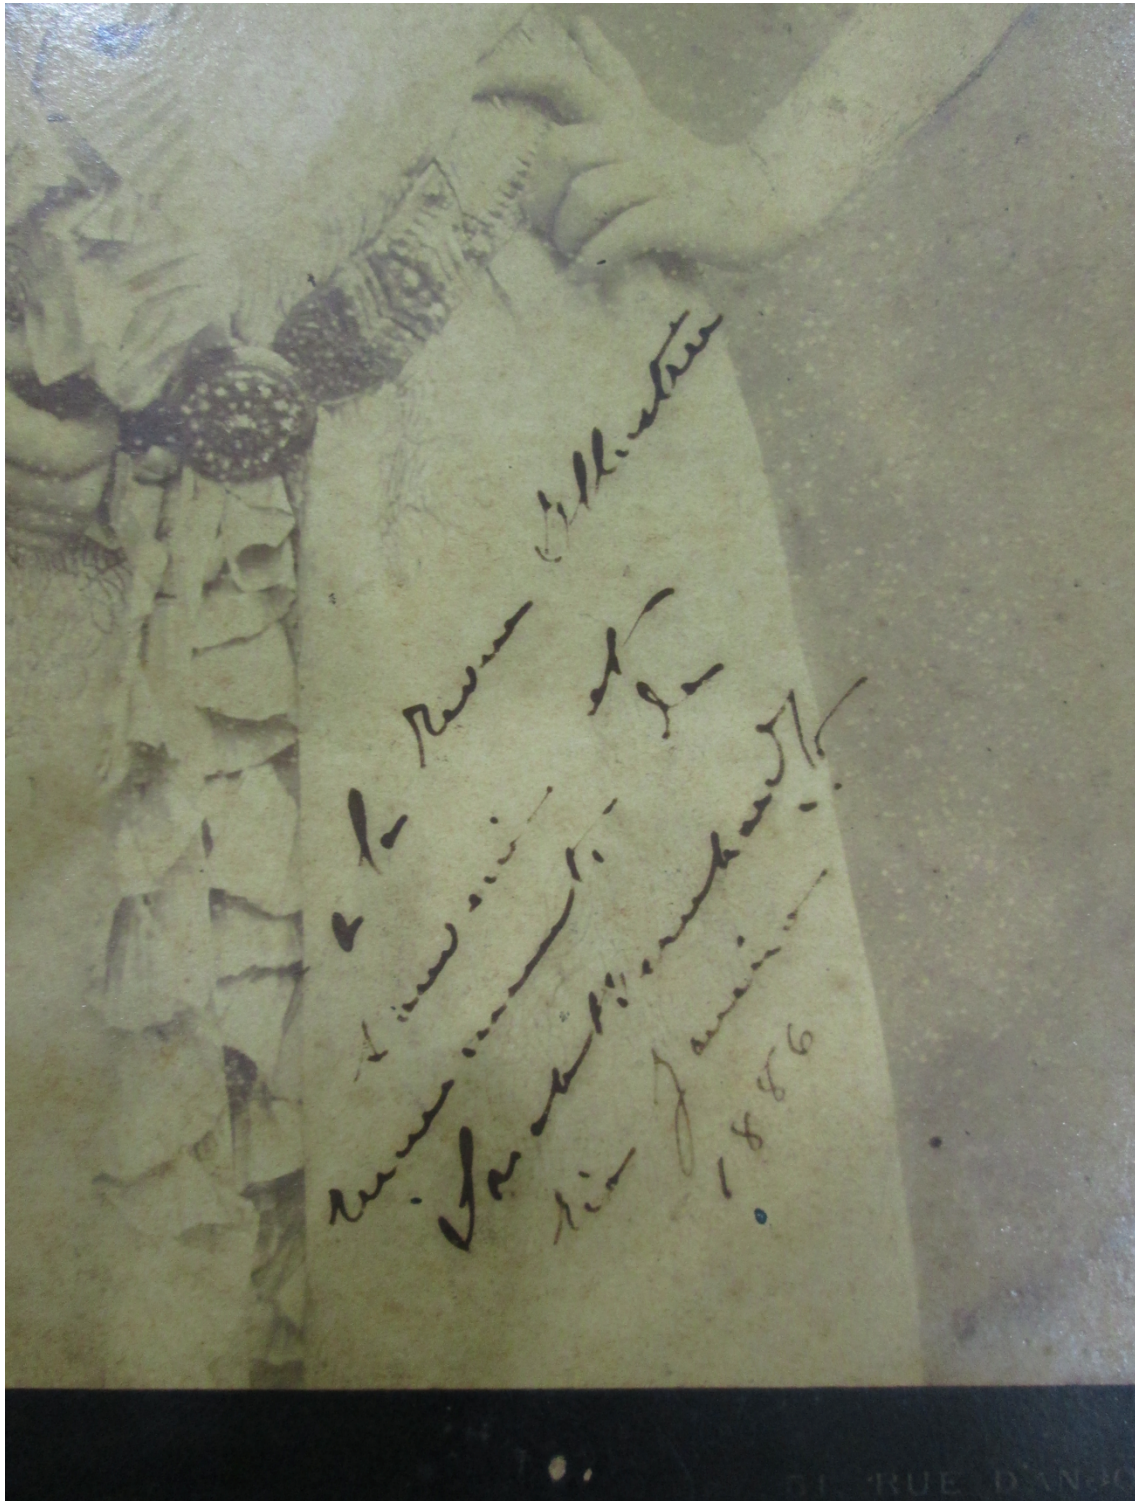 A la Revue Illustrée
Souvenir et
remerciements de
Sarah Bernhardt
Rio Janeiro
1886
RUE D'ANJO